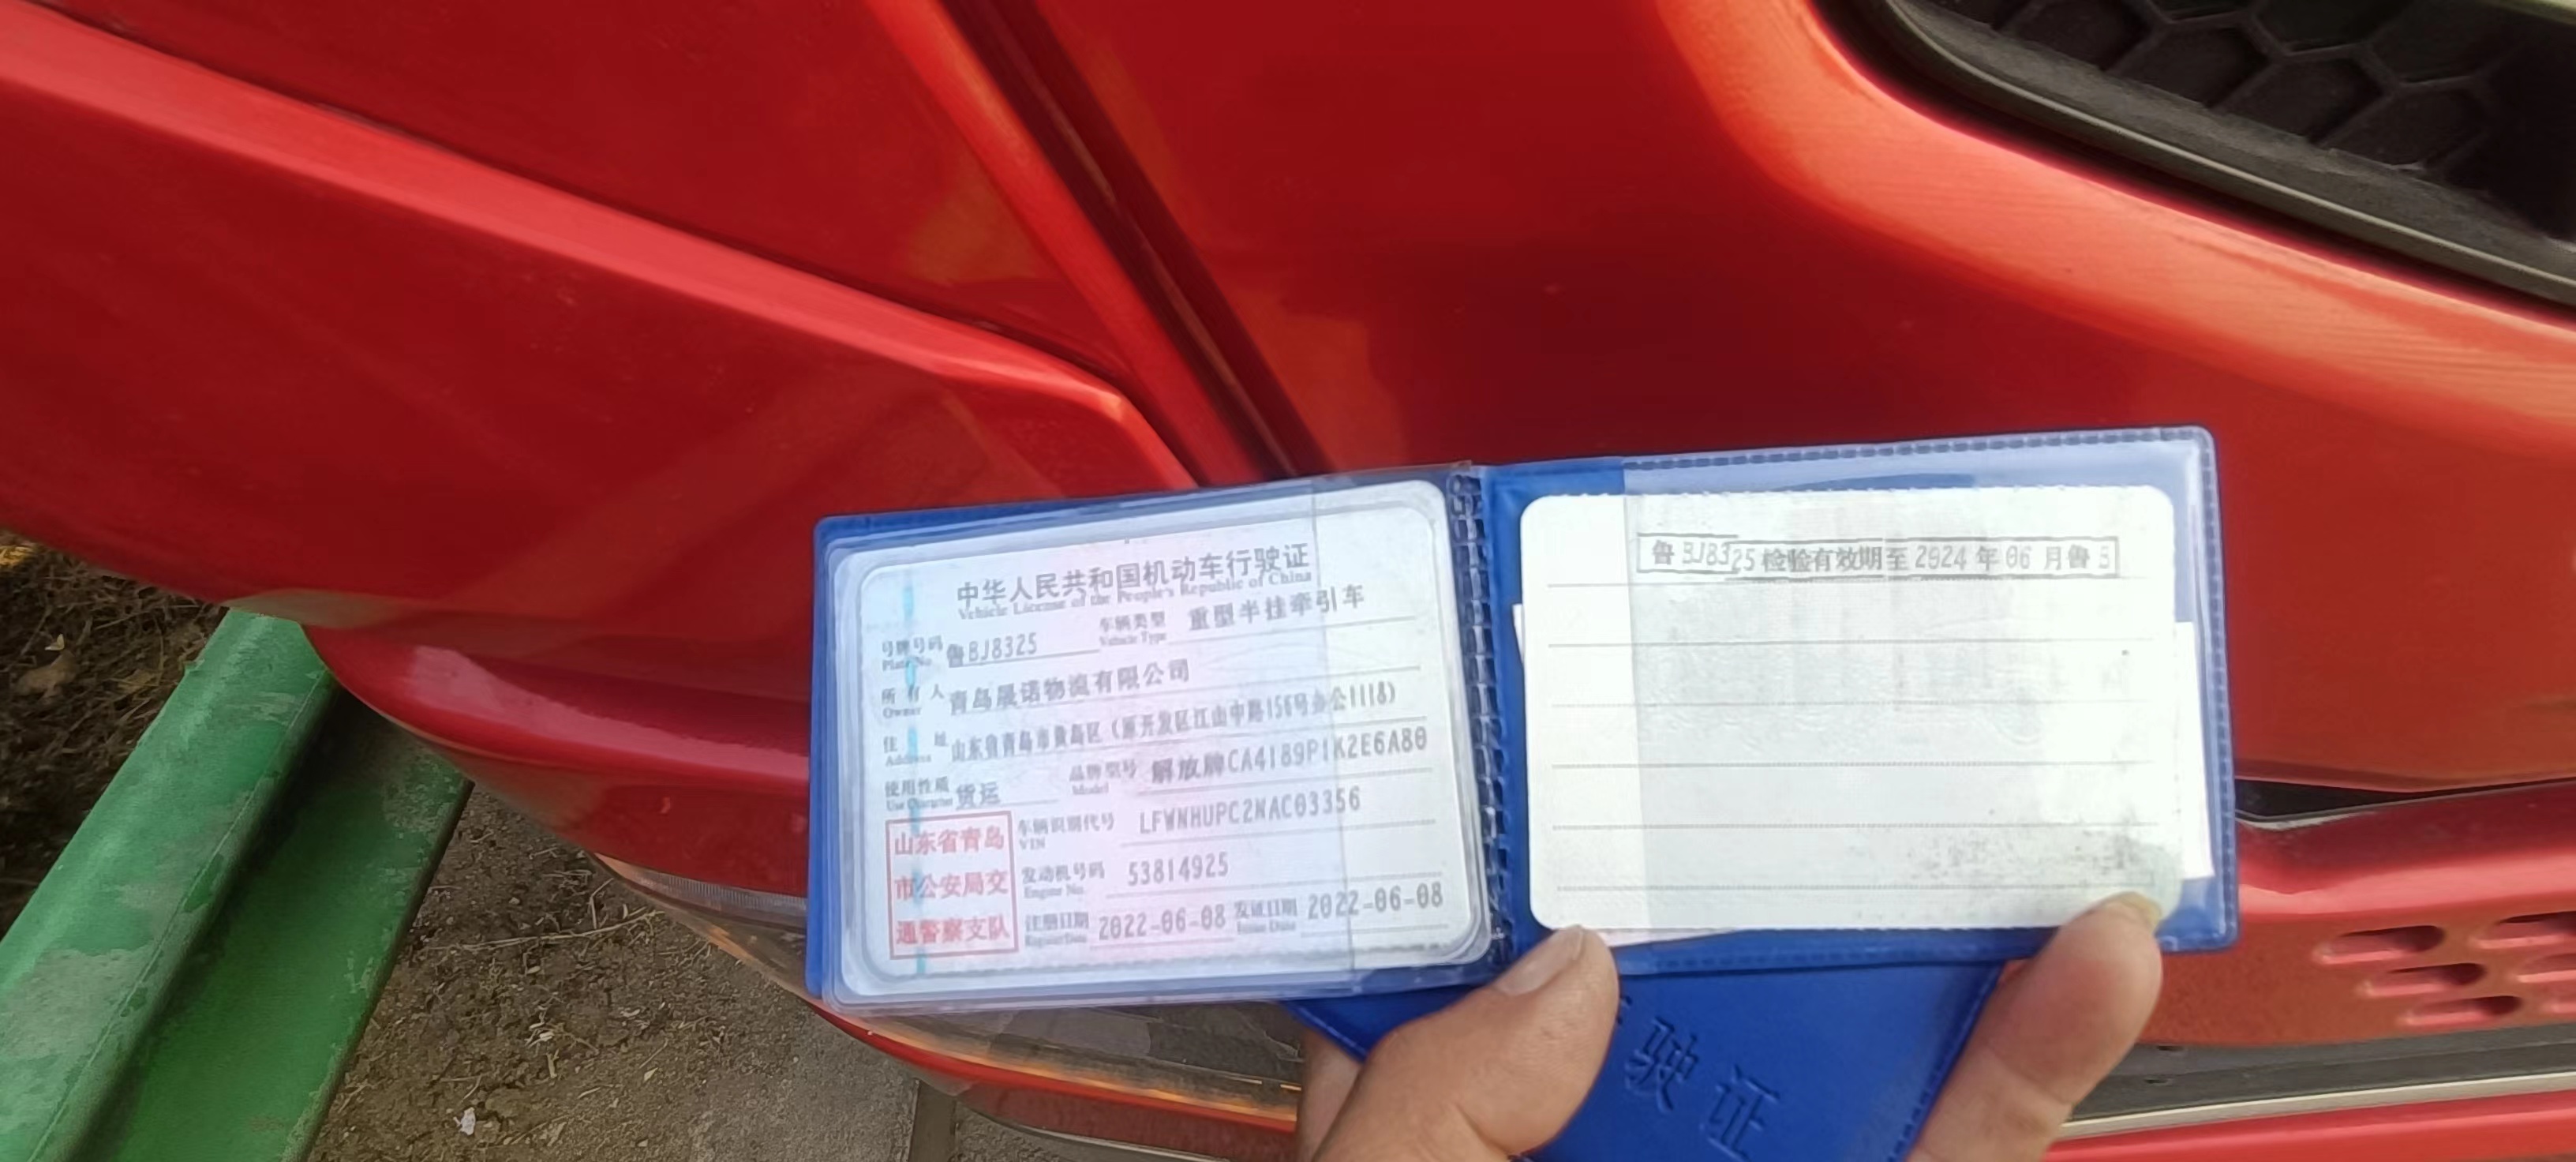 中华人民共和国机动车行驶证
Vehicle License of the People's Republic of China
号牌号码 鲁BJ8325 车辆类型 重型半挂牵引车
Plate No. Vehicle Type
所有人 青岛晟诺物流有限公司
Owner
住址 山东省青岛市黄岛区(原开发区江山中路156号办公1118)
Address
使用性质 货运 品牌型号 解放牌CA4189P1K2E6A80
Use Character Model
车辆识别代号 LFWNHUPC2NAC03356
VIN
发动机号码 53814925
Engine No.
注册日期 2022-06-08 发证日期 2022-06-08
Register Date Issue Date
山东省青岛
市公安局交
通警察支队
鲁BJ8325 检验有效期至 2024 年 06 月鲁B
驶证